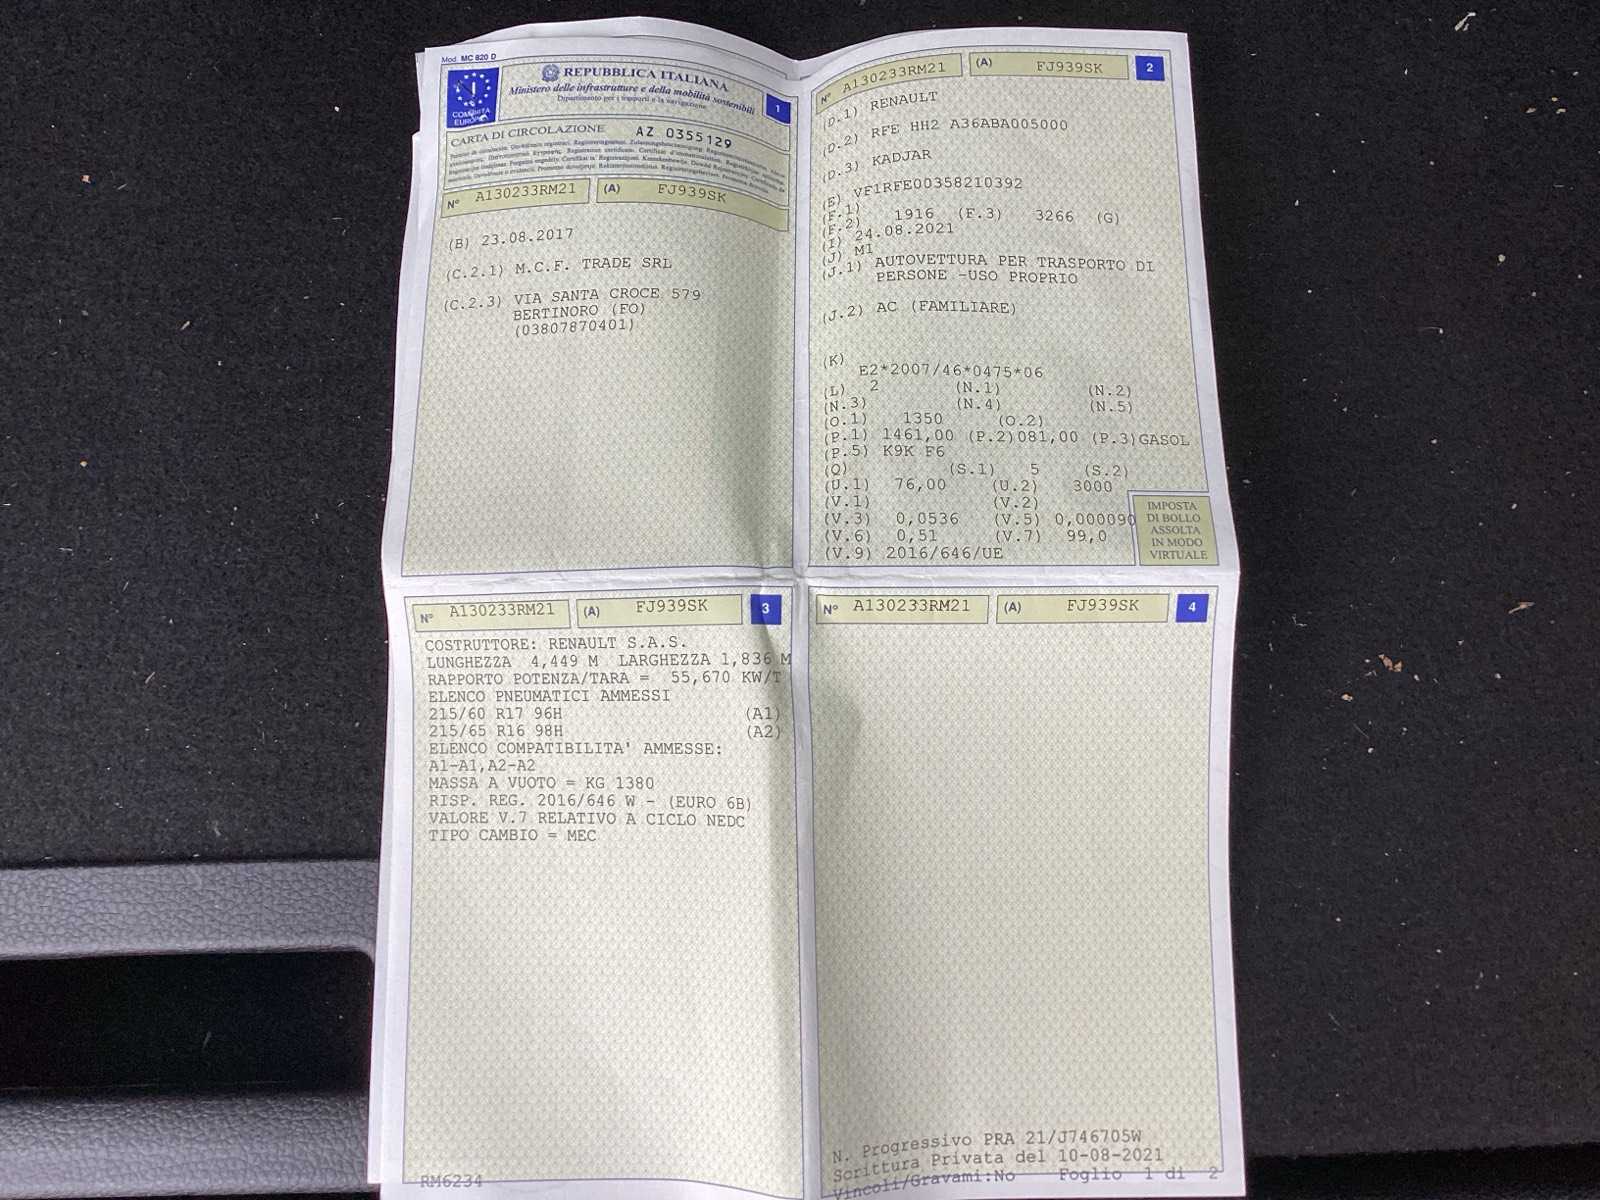 Mod. MC 820 D
REPUBBLICA ITALIANA
Ministero delle infrastrutture e della mobilità sostenibili
Dipartimento per i trasporti e la navigazione
1
I
COMUNITA
EUROPEA
CARTA DI CIRCOLAZIONE AZ 0355129
N° A130233RM21 (A) FJ939SK
(B) 23.08.2017
(C.2.1) M.C.F. TRADE SRL
(C.2.3) VIA SANTA CROCE 579
BERTINORO (FO)
(03807870401)
N° A130233RM21 (A) FJ939SK 2
(D.1) RENAULT
(D.2) RFE HH2 A36ABA005000
(D.3) KADJAR
(E) VF1RFE00358210392
(F.1)
(F.2) 1916 (F.3) 3266 (G)
(I) 24.08.2021
(J) M1
(J.1) AUTOVETTURA PER TRASPORTO DI
PERSONE -USO PROPRIO
(J.2) AC (FAMILIARE)
(K)
E2*2007/46*0475*06
(L) 2 (N.1) (N.2)
(N.3) (N.4) (N.5)
(O.1) 1350 (O.2)
(P.1) 1461,00 (P.2)081,00 (P.3)GASOL
(P.5) K9K F6
(Q) (S.1) 5 (S.2)
(U.1) 76,00 (U.2) 3000
(V.1) (V.2)
(V.3) 0,0536 (V.5) 0,000090
(V.6) 0,51 (V.7) 99,0
(V.9) 2016/646/UE
IMPOSTA
DI BOLLO
ASSOLTA
IN MODO
VIRTUALE
N° A130233RM21 (A) FJ939SK 3
COSTRUTTORE: RENAULT S.A.S.
LUNGHEZZA 4,449 M LARGHEZZA 1,836 M
RAPPORTO POTENZA/TARA = 55,670 KW/T
ELENCO PNEUMATICI AMMESSI
215/60 R17 96H (A1)
215/65 R16 98H (A2)
ELENCO COMPATIBILITA' AMMESSE:
A1-A1,A2-A2
MASSA A VUOTO = KG 1380
RISP. REG. 2016/646 W - (EURO 6B)
VALORE V.7 RELATIVO A CICLO NEDC
TIPO CAMBIO = MEC
RM6234
N° A130233RM21 (A) FJ939SK 4
N. Progressivo PRA 21/J746705W
Scrittura Privata del 10-08-2021
Vincoli/Gravami:No Foglio 1 di 2